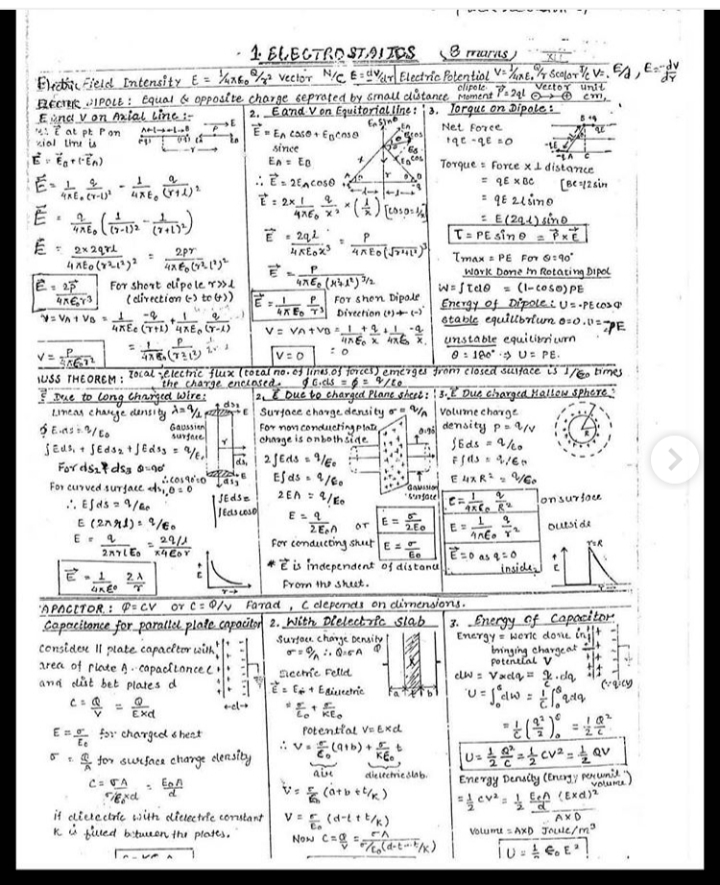 1. ELECTROSTATICS (8 marks) XII
Electric Field Intensity E = 1/4πε₀ Q/r² vector N/C E = dV/dr Electric Potential V = 1/4πε₀ Q/r Scalar J/C
ELECTRIC DIPOLE : Equal & opposite charge seprated by small distance dipole Moment P = 2ql Vector unit cm,
E and V on Axial Line :-
E at pt P on
axial line is
E = 1/4πε₀ q/(r-l)² - 1/4πε₀ q/(r+l)²
E = q/4πε₀ (1/(r-l)² - 1/(r+l)²)
E = 2×2qrl/4πε₀(r²-l²)² = 2pr/4πε₀(r²-l²)²
E = 2p/4πε₀r³ For short dipole r>>l
(direction (-) to (+))
V = VA + VB = 1/4πε₀ -q/(r+l) + 1/4πε₀ q/(r-l)
2. E and V on Equitorial line :
E = EA cosθ + EB cosθ
since
EA = EB
∴ E = 2EA cosθ
E = 2× 1/4πε₀ q/x² × (l/x) [cosθ = l/x]
E = 2ql/4πε₀x³ = P/4πε₀(√r²+l²)³
E = P/4πε₀(r²+l²)^3/2
E = 1/4πε₀ P/r³ For short Dipole
Direction (+) → (-)
V = VA + VB = 1/4πε₀ +q/x + 1/4πε₀ -q/x
V = 0 = 0
3. Torque on Dipole :
Net Force
+qE - qE = 0
Torque = Force × ⊥ distance
= qE × BC [BC = 2l sin
= qE 2l sinθ
= E (2ql) sinθ
τ = PE sinθ = P×E
τmax = PE For θ=90°
Work Done in Rotating Dipol
W = ∫τdθ = (1-cosθ)PE
Energy of Dipole : U = -PE cosθ
stable equilibrium θ=0, U = -PE
unstable equilibrium
θ = 180° ⇒ U = PE.
USS THEOREM : Total electric flux (total no. of lines of forces) emerges from closed surface is 1/ε₀ times
the charge enclosed. ∮E.ds = ϕ = q/ε₀
E Due to Long Charged Wire :
Linear charge density λ = q/l
∮E.ds = q/ε₀ Gaussian surface
∫Eds₁ + ∫Eds₂ + ∫Eds₃ = q/ε₀
For ds₂ & ds₃ θ=90°
∴ cos90°=0
For curved surface ds₁, θ = 0
∴ E∫ds = q/ε₀ ∫Eds = ∫Eds cos0
E (2πrl) = q/ε₀
E = q/2πrlε₀
E = 1/4πε₀ 2λ/r
2. E Due to charged Plane sheet :
Surface charge density σ = q/A
For non conducting plate
charge is on both side
2∫Eds = q/ε₀
E∫ds = q/ε₀
2EA = q/ε₀
Gaussian surface
E = q/2ε₀A or E = σ/2ε₀
For conducting sheet E = σ/ε₀
* E is independent of distance
From the sheet.
3. E Due charged Hallow sphere :
Volume charge
density ρ = q/V
∫Eds = q/ε₀
E∫ds = q/ε₀
E 4πR² = q/ε₀
E = 1/4πε₀ q/R² on surface
E = 1/4πε₀ q/r² outside
E = 0 as q = 0 inside
r=R
APACITOR : Q = CV or C = Q/V Farad , C depends on dimensions.
Capacitance for parallel plate capacitor
consider || plate capacitor with
area of plate A . capacitance C
and dist bet plates d
C = Q/V = Q/E×d
E = σ/ε₀ for charged sheet
σ = Q/A for surface charge density
C = σA/σ/ε₀×d = ε₀A/d
if dielectric with dielectric constant
K is filled between the plates.
2. With Dielectric Slab
Surface charge Density
σ = Q/A ∴ Q = σA
Electric Feild
E = E₀ + E dielectric
= σ/ε₀ + σ/Kε₀
Potential V = E×d
∴ V = σ/ε₀ (a+b) + σ/Kε₀ t
air dielectric slab.
V = σ/ε₀ (a+b+t/K)
V = σ/ε₀ (d-t+t/K)
Now C = Q/V = σA/σ/ε₀(d-t+t/K)
3. Energy of Capacitor
Energy = work done in
bringing charge at
potential V
dW = V×dq = q/C . dq (∵ q/C=V)
U = ∫dW = 1/C ∫q dq
= 1/C (q²/2) = 1/2 Q²/C
U = 1/2 Q²/C = 1/2 CV² = 1/2 QV
Energy Density (Energy per unit volume)
= 1/2 CV² = 1/2 ε₀A/d (E×d)²
A×D
Volume = A×D Joule/m³
U = 1/2 ε₀E²